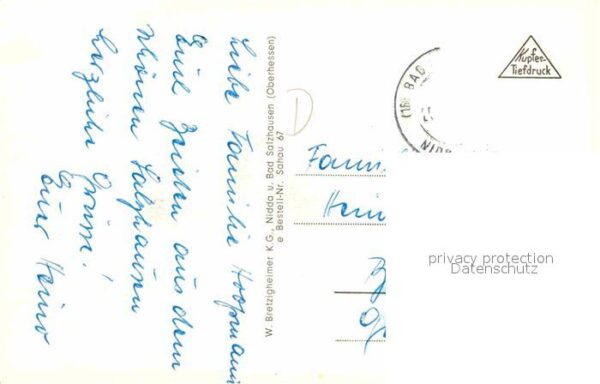 Liebe Familie Hoopmann
Eure Zeilen aus dem
schönen Salzhausen
herzliche Grüsse!
Euer Heino
W. Bretzigheimer K.G., Nidda u. Bad Salzhausen (Oberhessen)
e Bestell-Nr. Sahau 67
D
(16) BAD
NIDD
Kupfer-
Tiefdruck
Fami
Hein
privacy protection
Datenschutz